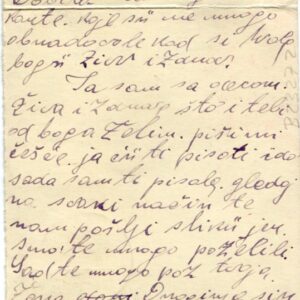 karte. koje su me mnogo
obradovale kad si hvala
bogu živ i zdrav.
Ja sam sa decom.
Živa i zdrava što i tebi
od boga želim. piši mi
češće. ja ću ti pisati i do
sada sam ti pisala. gledaj
na svaki način te
nam pošlji sliku jer
smo te mnogo poželili.
Sad te mnogo poz tvoja
Žena